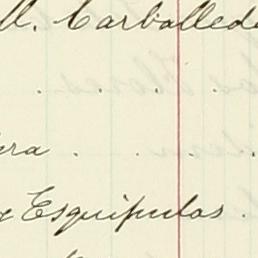 M. Carballeda
. . . .
era . . . .
Esquipulas .